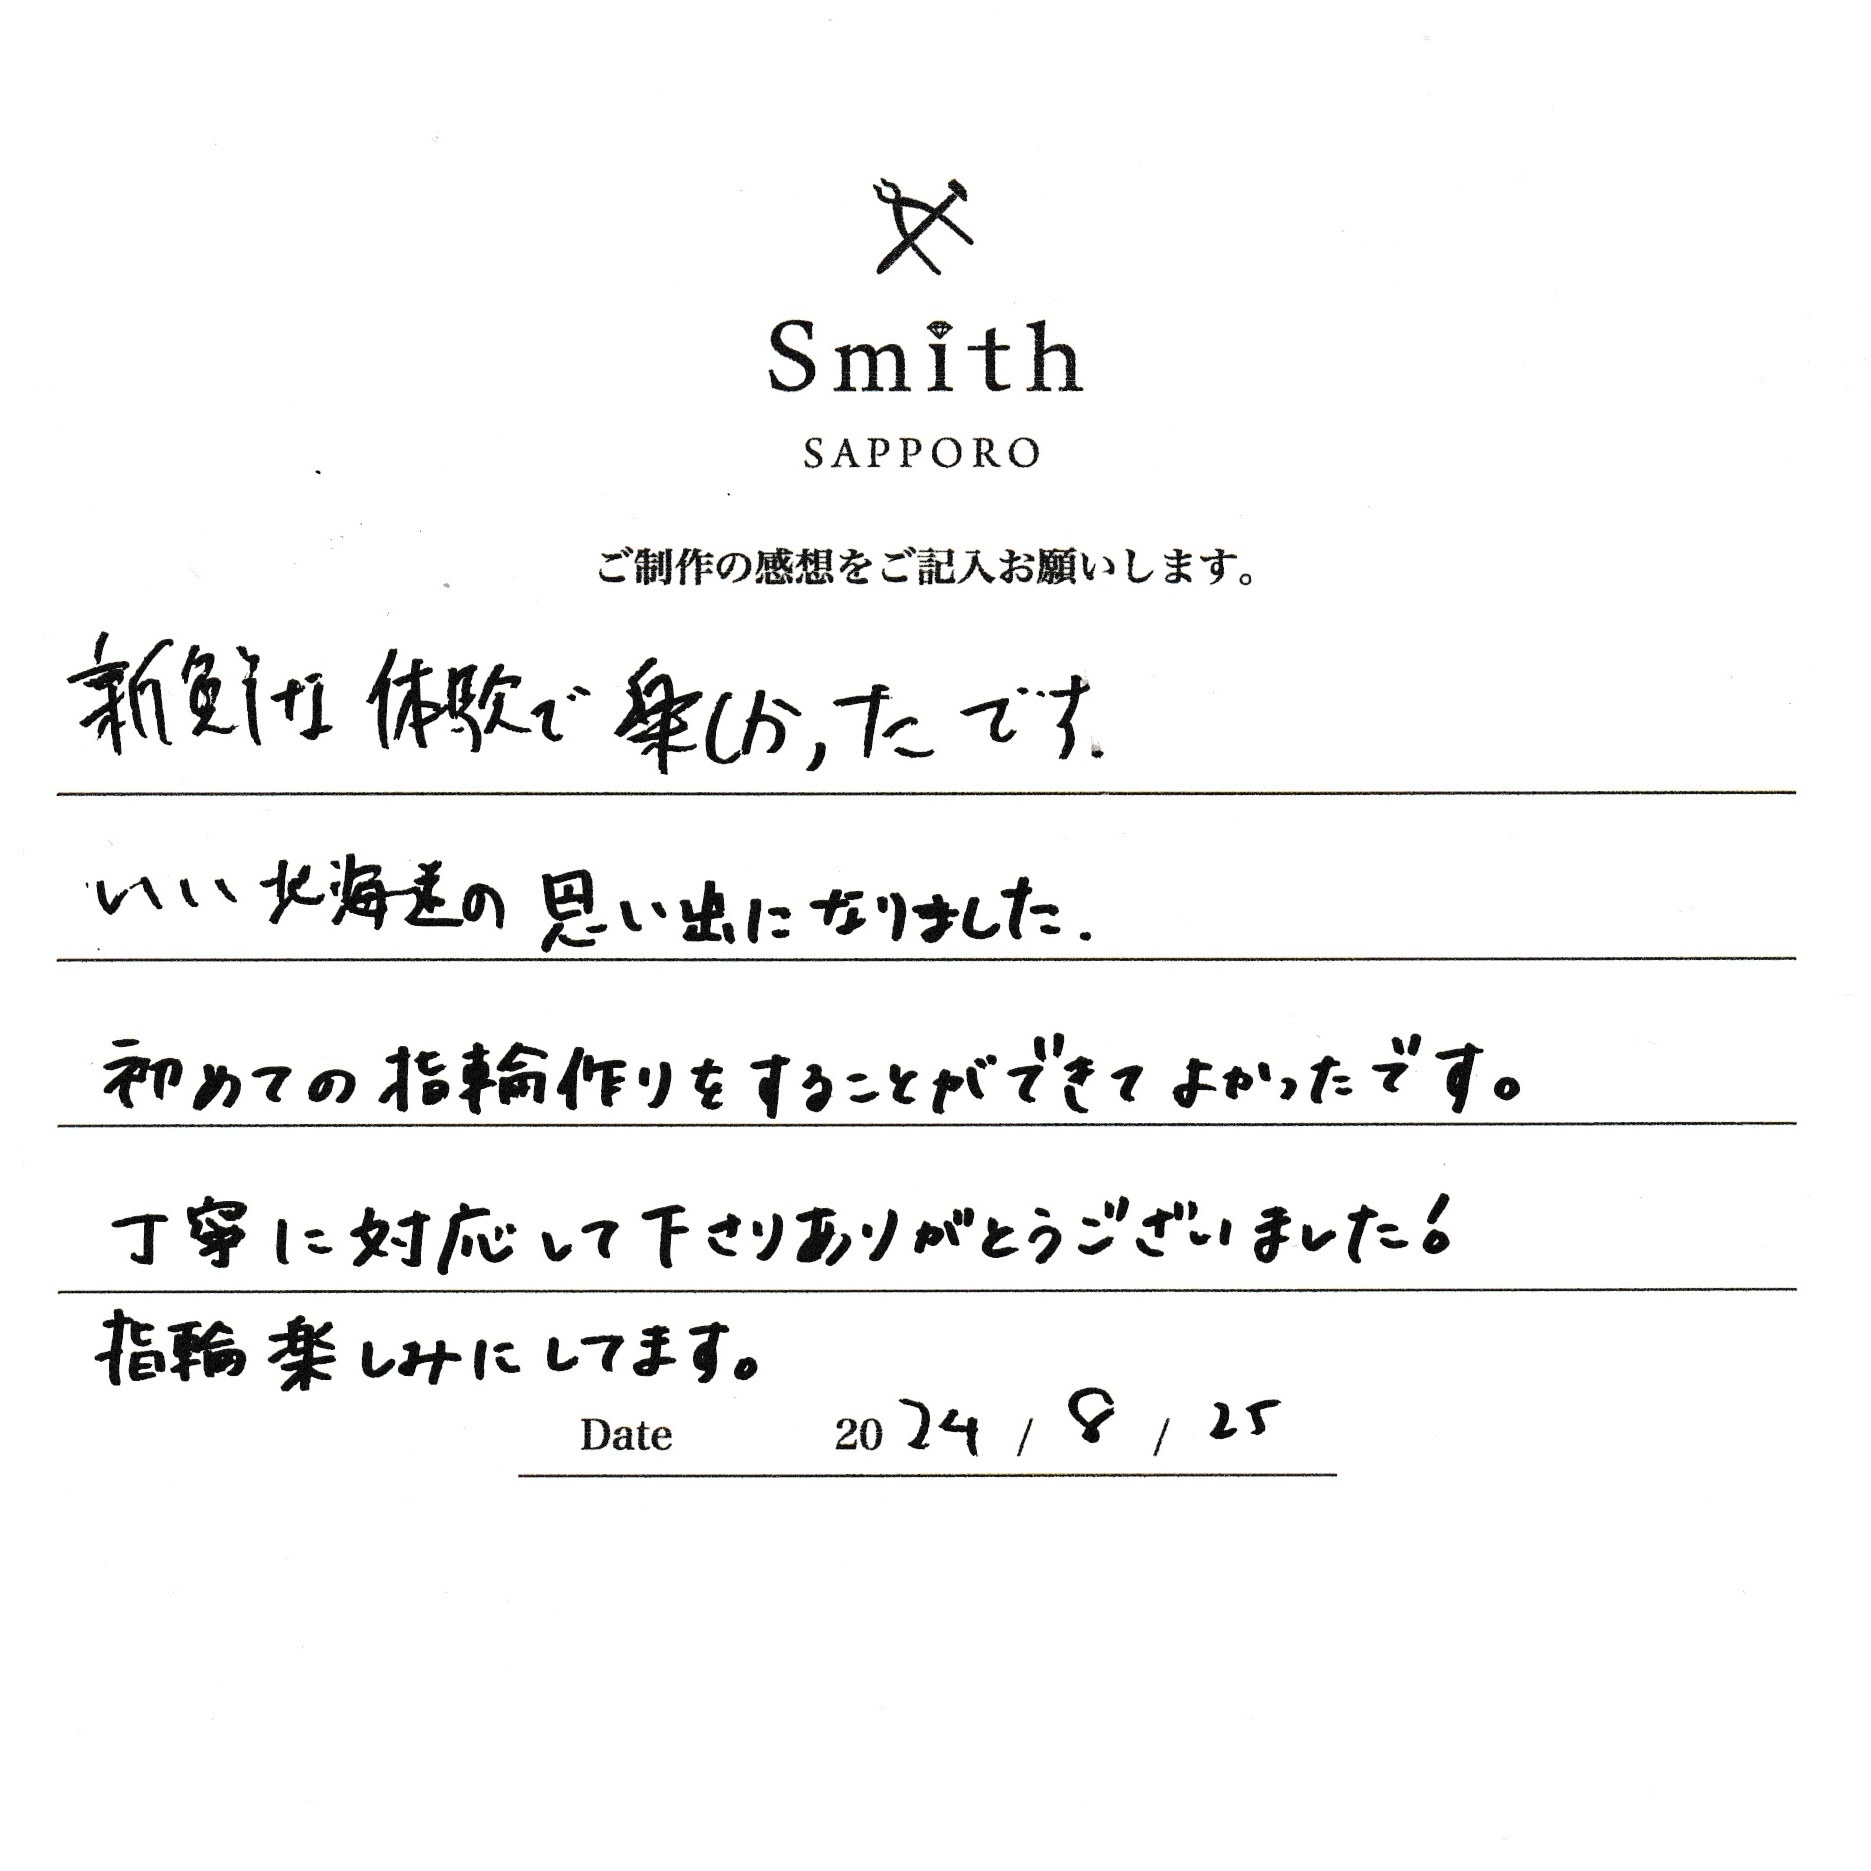 Smith
SAPPORO
ご制作の感想をご記入お願いします。
新鮮な体験で楽しかったです.
いい北海道の思い出になりました.
初めての指輪作りをすることができてよかったです。
丁寧に対応して下さりありがとうございました!
指輪楽しみにしてます。
Date 2024 / 8 / 25